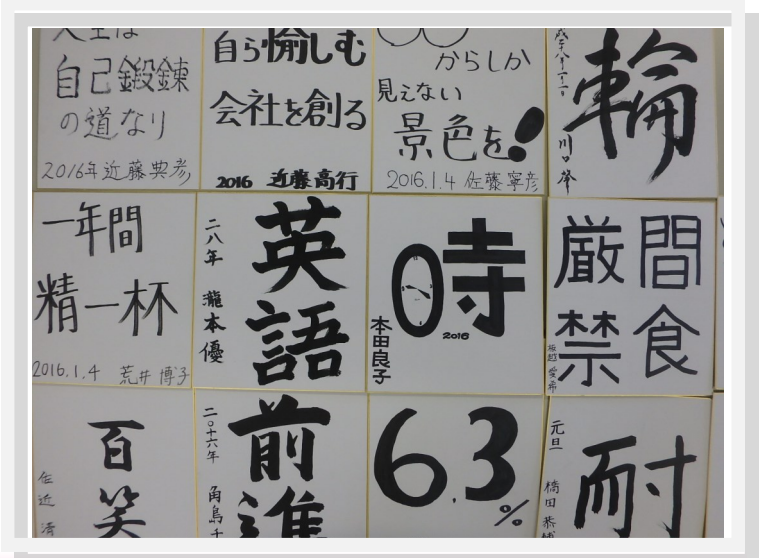 人生は
自己鍛錬
の道なり
2016年 近藤典彦
自ら愉しむ
会社を創る
2016 近藤高行
からしか
見えない
景色を!
2016.1.4 佐藤寧彦
輪
一年間
精一杯
2016.1.4 荒井博子
英語
二八年 瀧本優
時
2016
本田良子
間食
厳禁
百笑
佐近
前進
二〇十六年 角島千
6.3%
耐
元旦 橋田恭